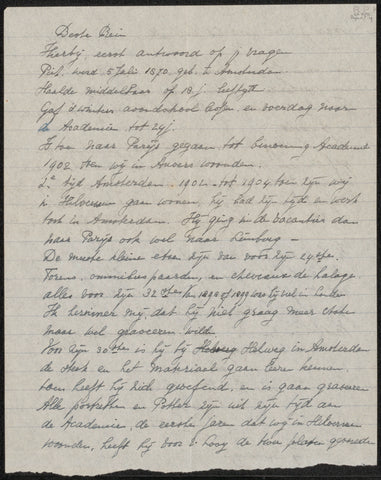 Beste Rein
Hierbij eerst antwoord op je vragen
Piet werd 5 Juli 1870 geb. te Amsterdam
Haalde middelbaar op 18 j. leeftijd
Gaf daarna avondschool lessen en overdag naar
de Academie tot 24 j.
Is toen naar Parijs gegaan tot benoeming Academie
1902 toen wij in Anvers woonden.
2e tijd Amsterdam 1902 tot 1904 toen zijn wij
in Hilversum gaan wonen, hij had zijn tijd en werk
toch in Amsterdam. Hij ging in de vacanties dan
naar Parijs ook wel naar Limburg –
De meeste kleine etsen zijn van voor zijn 24ste
Torens, omnibuspaarden, en chevaux de halage
alles voor zijn 32ste In 1898 of 1899 was hij wel in Londen
Ik herinner mij dat hij niet graag meer etste
maar wel graveeren wilde
Voor zijn 30ste is hij bij Helweg in Amsterdam
de steek en het materiaal gaan leeren kennen.
toen heeft hij zich geoefend, en is gaan graveeren
Alle portretten en Potter zijn uit zijn tijd aan
de Academie, de eerste jaren dat wij in Hilversum
woonden, heeft hij voor v. Looy de houtplaten gesneden